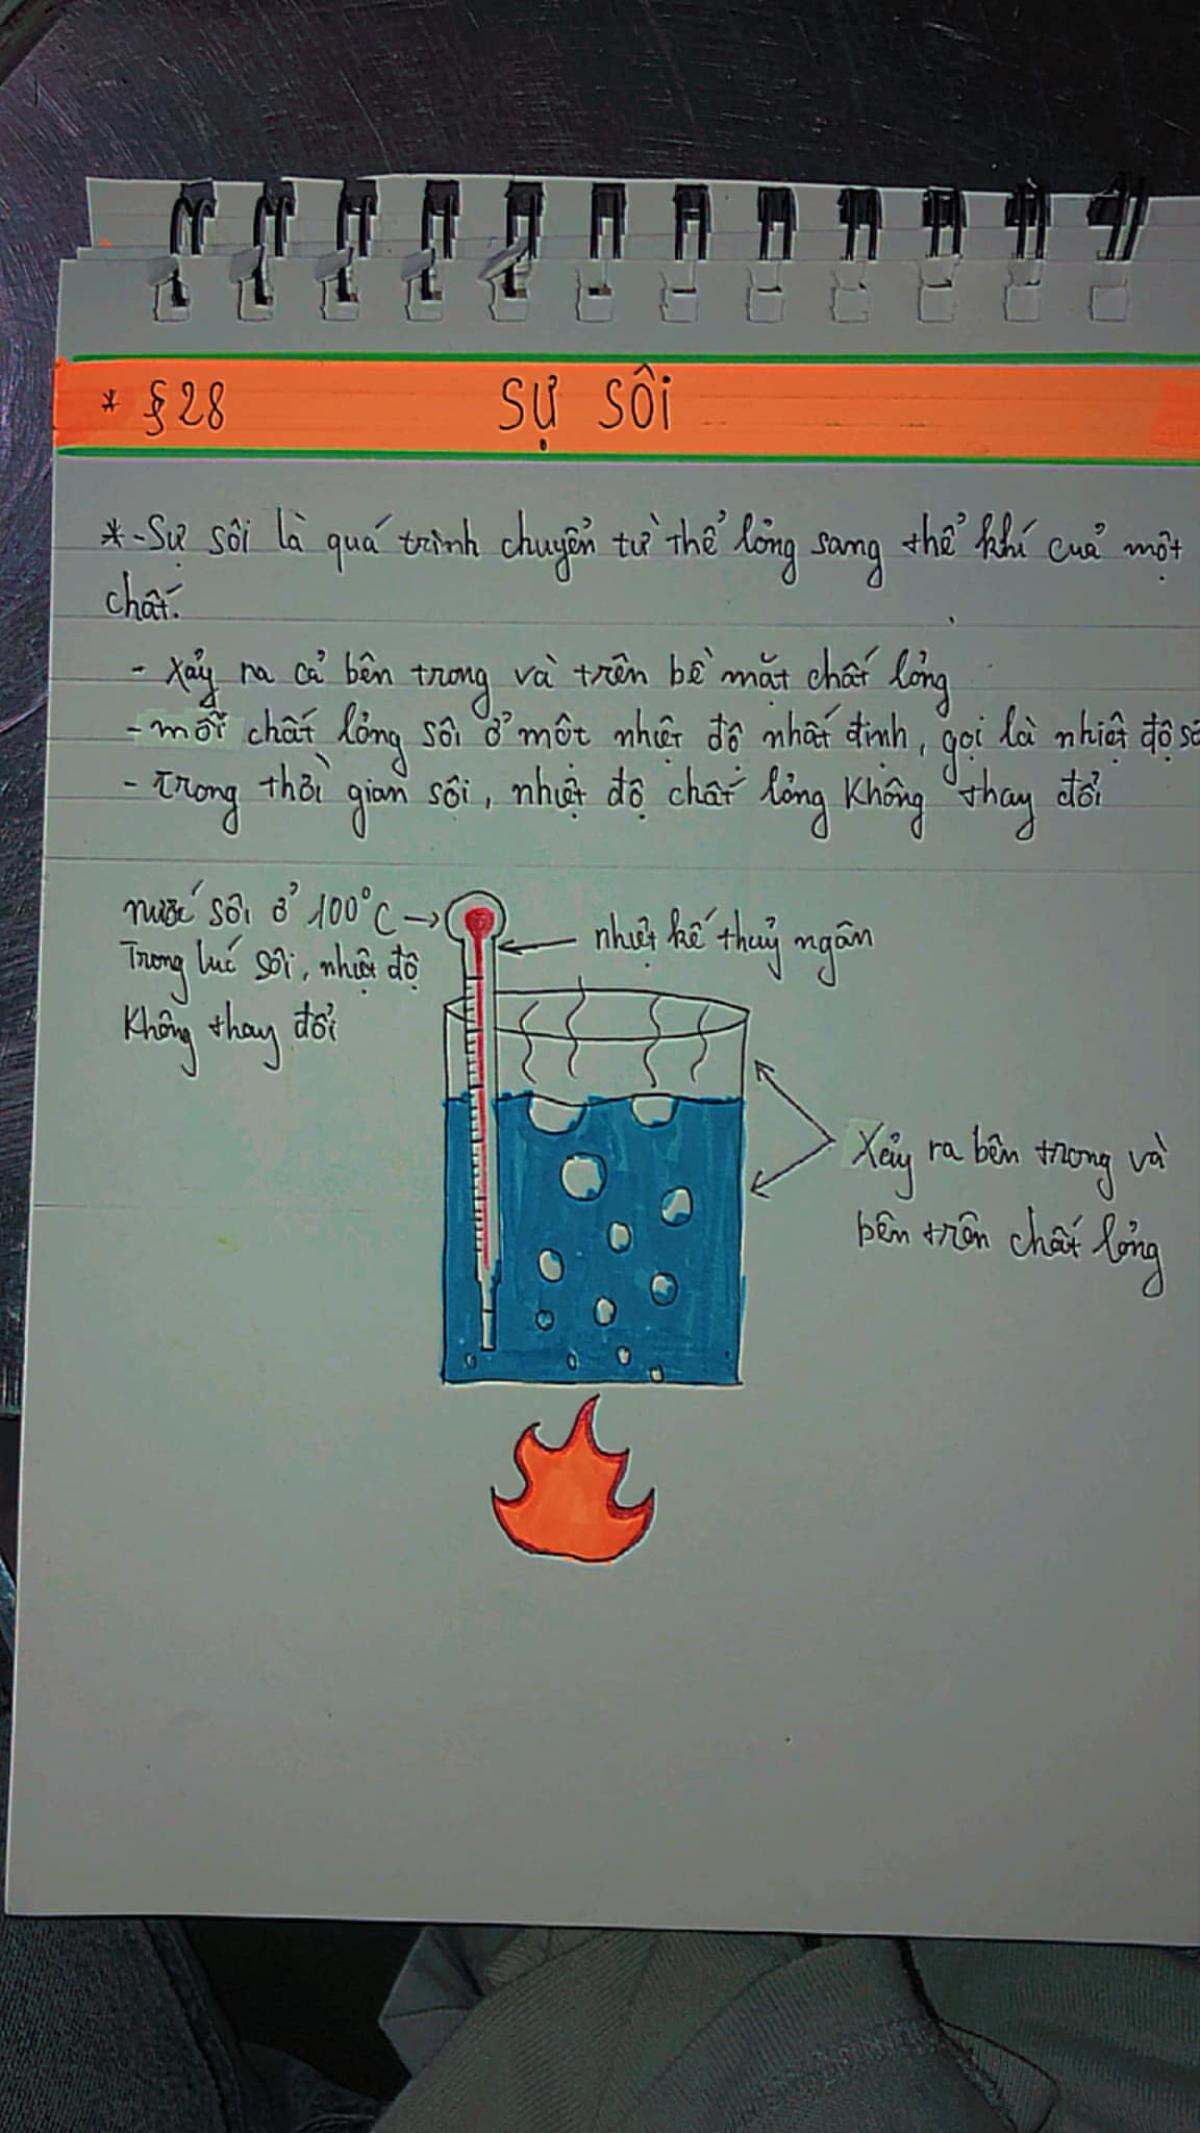 * §28 SỰ SÔI
*-Sự sôi là quá trình chuyển từ thể lỏng sang thể khí cuả một
chất.
- Xảy ra cả bên trong và trên bề mặt chất lỏng
- mỗi chất lỏng sôi ở một nhiệt độ nhất định, gọi là nhiệt độ sô
- Trong thời gian sôi, nhiệt độ chất lỏng không thay đổi
nước sôi ở 100°C →
nhiệt kế thuỷ ngân
Trong lúc sôi, nhiệt độ
không thay đổi
Xảy ra bên trong và
bên trên chất lỏng